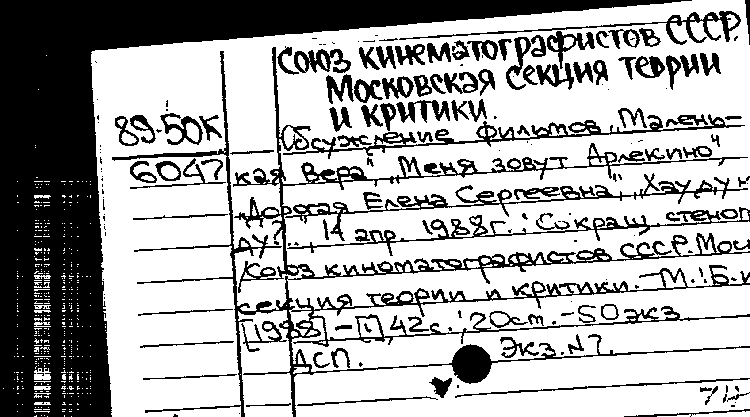 СОЮЗ КИНЕМАТОГРАФИСТОВ СССР.
МОСКОВСКАЯ СЕКЦИЯ ТЕОРИИ
И КРИТИКИ.
89-50К
6047
Обсуждение фильмов „Малень-
кая Вера", „Меня зовут Арлекино",
„Дорогая Елена Сергеевна", „Хау ду ю
ду?..", 14 апр. 1988г.: Сокращ. стеног
/Союз кинематографистов СССР. Мос
секция теории и критики. - М.: Б.и
[1988]. - [1], 42 с.; 20 см. - 50 экз.
ДСП. Экз. N 7.